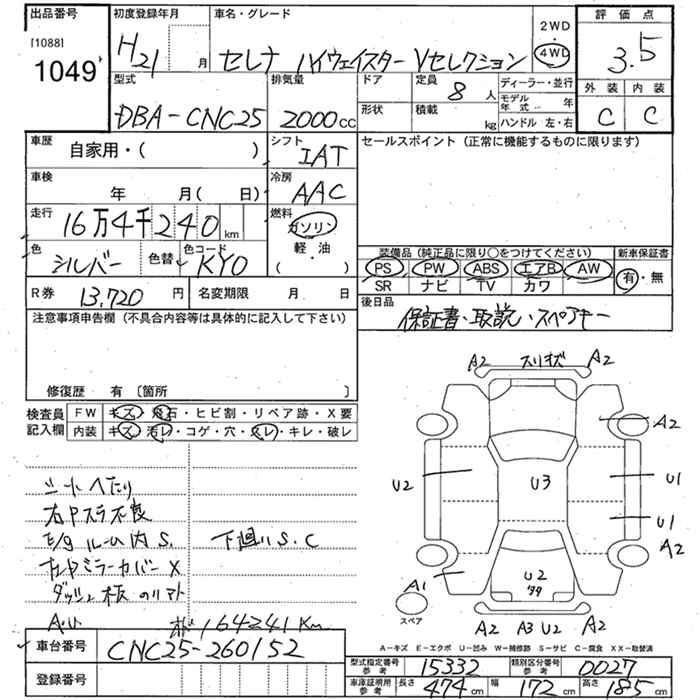 出品番号 初度登録年月 車名・グレード 評価点
[1088] 1049
H21 年 月 セレナ ハイウェイスター Vセレクション 2WD・4WD 3.5
型式 排気量 ドア 定員 8人 ディーラー・並行 外装 内装
モデル年式 年
DBA-CNC25 2000cc 形状 積載 kg ハンドル 左・右 C C
車歴 自家用・( ) シフト IAT セールスポイント (正常に機能するものに限ります)
車検 年 月( 日) 冷房 AAC
走行 16万4千240km 燃料 ガソリン
軽・油
( )
色 シルバー 色替 色コード KY0 装備品 (純正品に限り○をつけてください) 新車保証書
PS PW ABS エアB AW 有・無
SR ナビ TV カワ
R券 13,720円 名変期限 月 日 後日品
保証書・取説・スペアキー
注意事項申告欄 (不具合内容等は具体的に記入して下さい)
修復歴 有 [箇所 ]
検査員記入欄 FW キズ・飛石・ヒビ割・リペア跡・X要
内装 キズ・汚レ・コゲ・穴・スレ・キレ・破レ
シートへたり
右Pスラ不良
E/gルーム内S. 下廻りS.C
右ドミラーカバーX
ダッシュ板
164241Km
A2 スリキズ A2
A2
U2 U3 U1
U1
A2
A1 U2
スペア
A2 A3 U2 A2
A-キズ E-エクボ U-凹み W-補修跡 S-サビ C-腐食 XX-取替済
車台番号 CNC25-260152
登録番号
型式指定番号 参考 15332 類別区分番号 参考 0027
車庫証明用 参考 長さ 474cm 幅 172cm 高さ 185cm